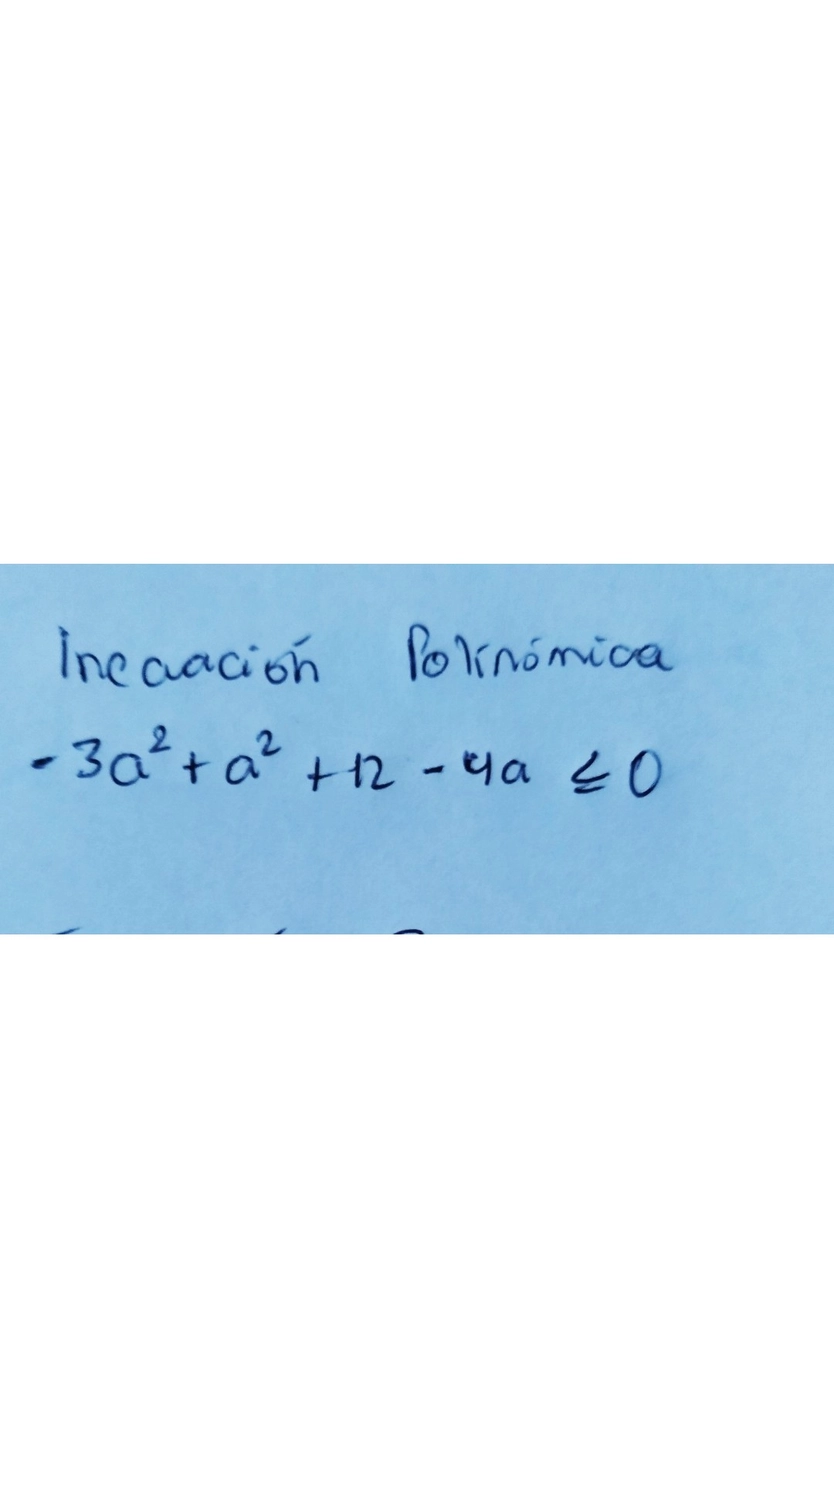 Inecuación Polinómica
-3a² + a² + 12 - 4a ≤ 0